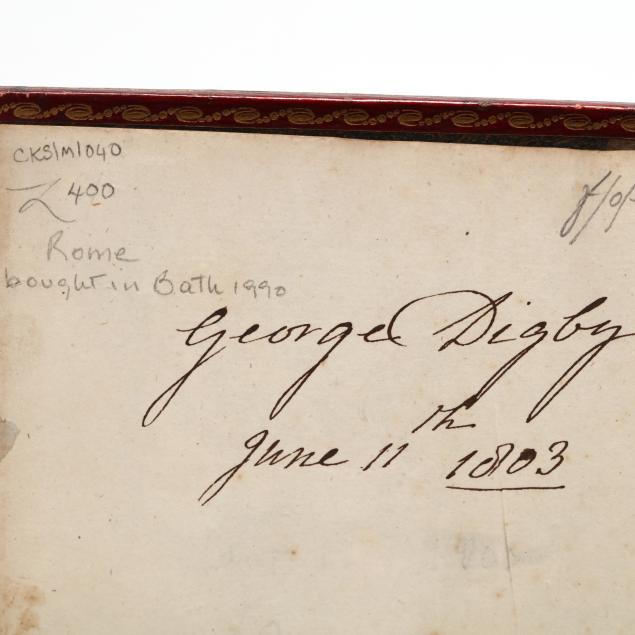 CKS/M/040
£400
Rome
bought in Bath 1990
George Digby
June 11th 1803